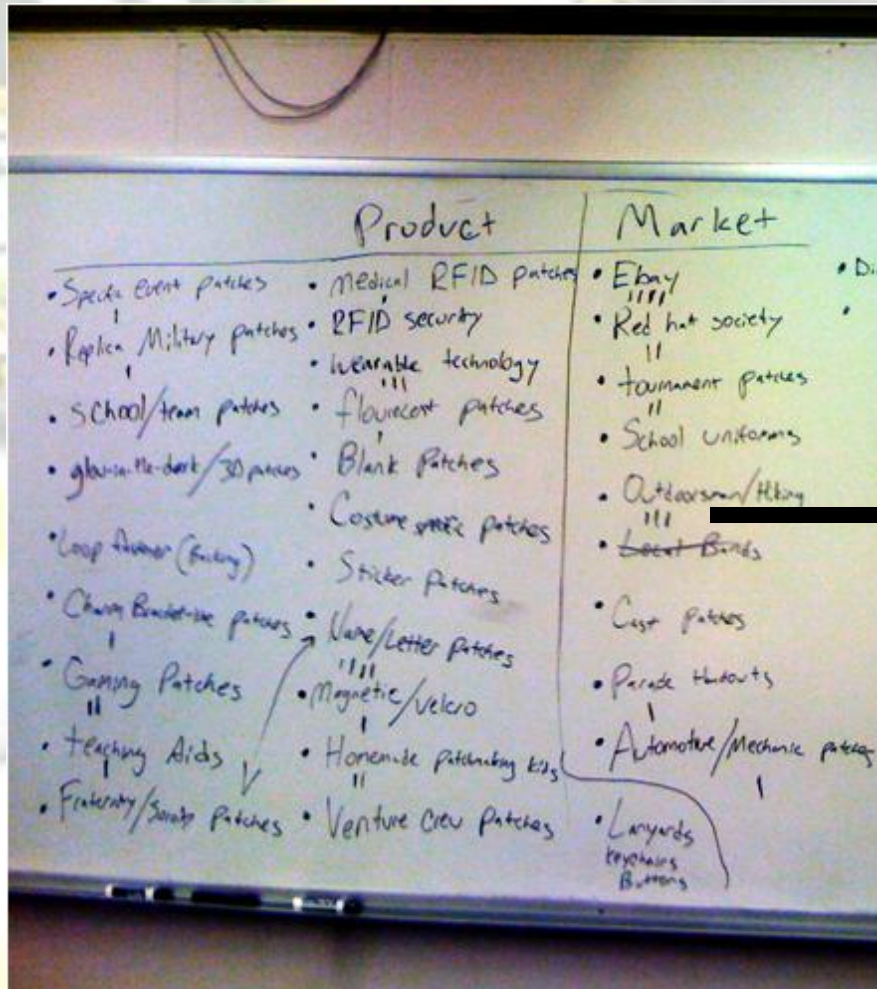 Product
Market
• Specia event patches
• Replica Military patches
• School/team patches
• glow-in-the-dark/3D patches
• Loop fastener (Backing)
• Charm Bracelet-like patches
• Gaming Patches
• teaching Aids
• Fraternity/Sorority patches
• medical RFID patches
• RFID security
• wearable technology
• flourecent patches
• Blank Patches
• Costume specific patches
• Sticker Patches
• Name/Letter patches
• Magnetic/velcro
• Homemade patchmaking kids
• Venture Crew Patches
• Ebay
• Red hat society
• tournament patches
• School uniforms
• Outdoorsman/Hiking
• Local Bands
• Cast patches
• Parade Handouts
• Automotive/Mechanic patches
• Lanyards
keychains
Buttons